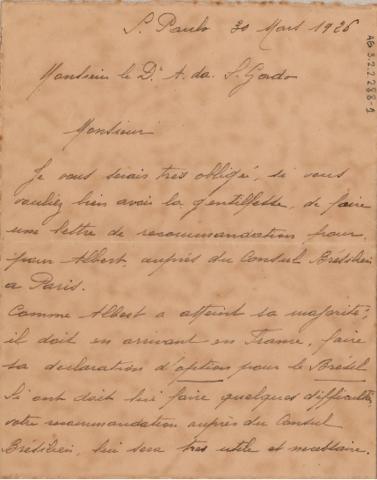 S. Paulo 30 Mars 1926
AG 3.2.2.288-1
Monsieur le Dr A. da S. Gordo
Monsieur
Je vous serais très obligé, si vous
vouliez bien avoir la gentillesse, de faire
une lettre de recommandation pour
pour Albert, auprès du Consul Brésilien
a Paris.
Comme Albert a atteint sa majorité;
il doit en arrivant en France, faire
sa déclaration d'option pour le Brésil
Si ont doit lui faire quelques difficultés,
votre recommandation auprès du Consul
Brésilien, lui sera très utile et nécessaire.